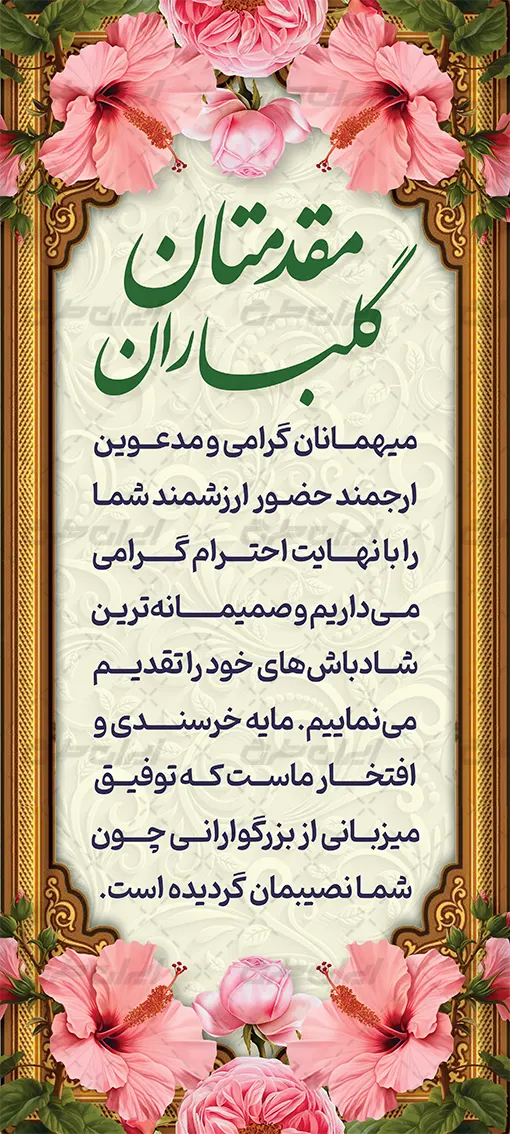 مقدمتان
گلباران
میهمانان گرامی و مدعوین
ارجمند حضور ارزشمند شما
را با نهایت احترام گرامی
می‌داریم و صمیمانه‌ترین
شادباش‌های خود را تقدیم
می‌نماییم. مایه خرسندی و
افتخار ماست که توفیق
میزبانی از بزرگوارانی چون
شما نصیبمان گردیده است.